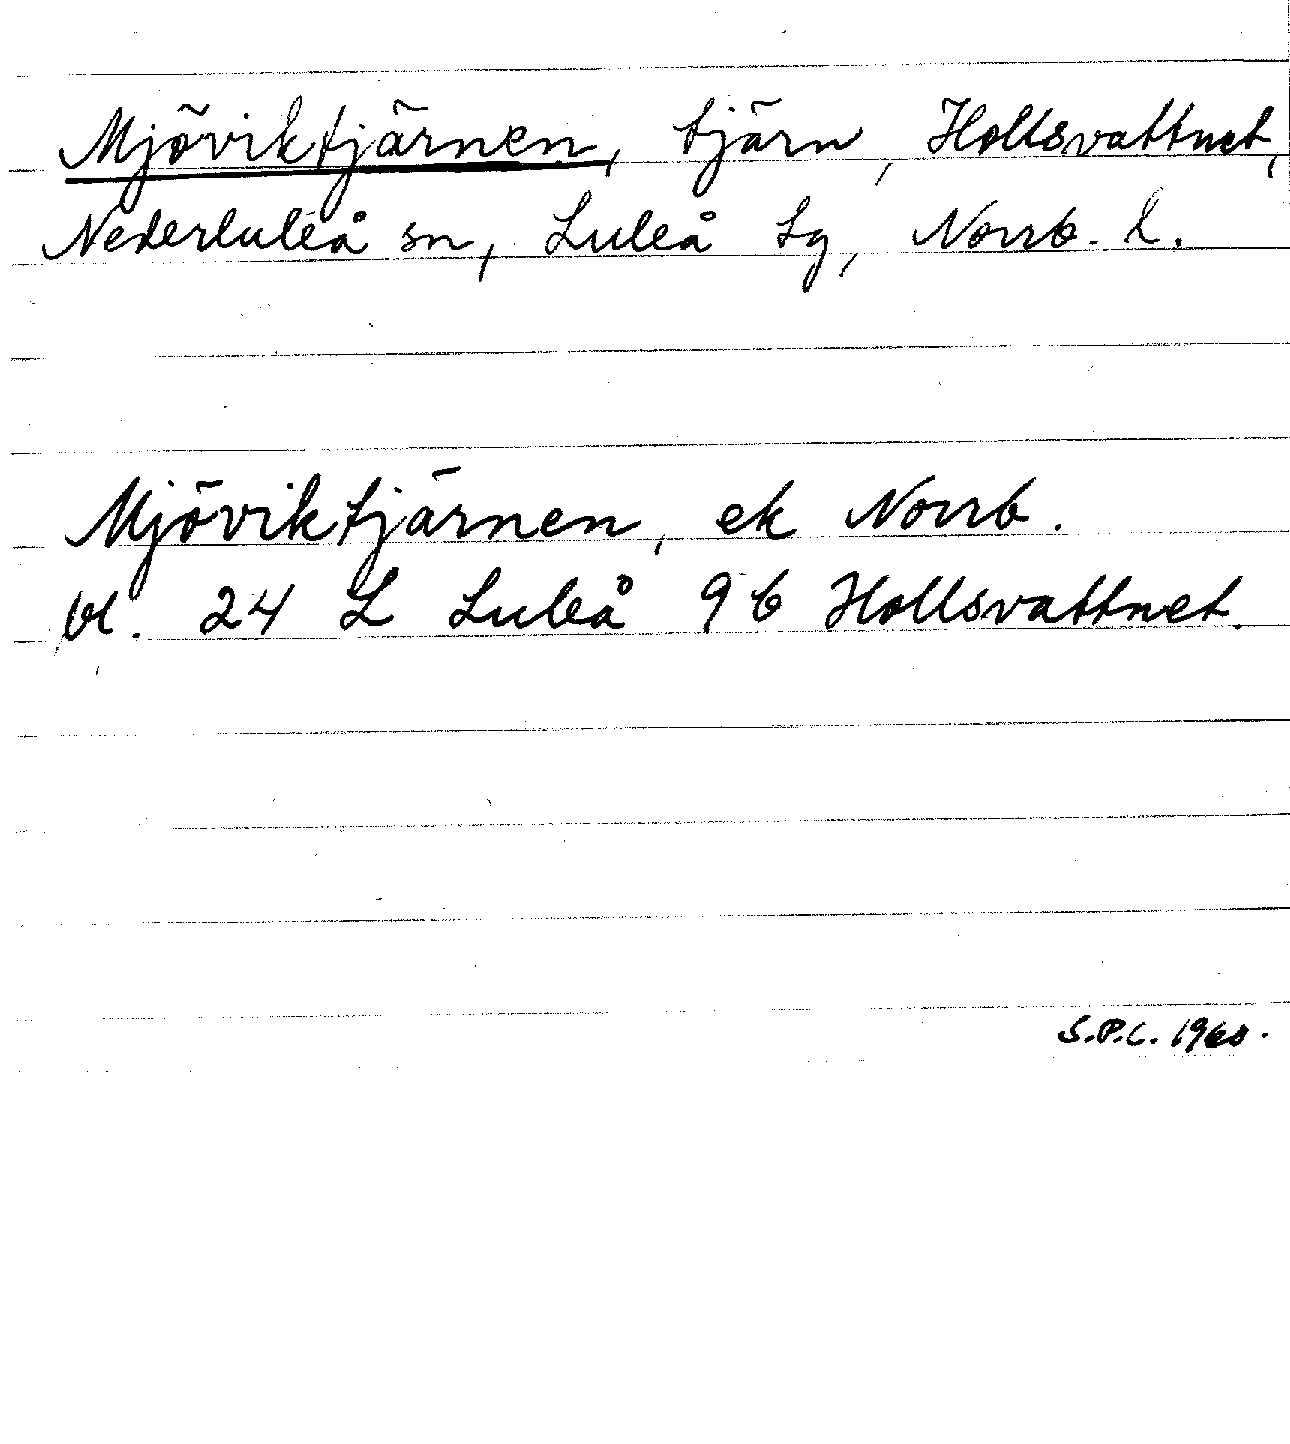 Mjöviktjärnen, tjärn, Hollsvattnet,
Nederluleå sn, Luleå tg, Norrb. l.
Mjöviktjärnen, ek Norrb.
bl. 24 L Luleå 9 b Hollsvattnet.
S.P.C. 1960.